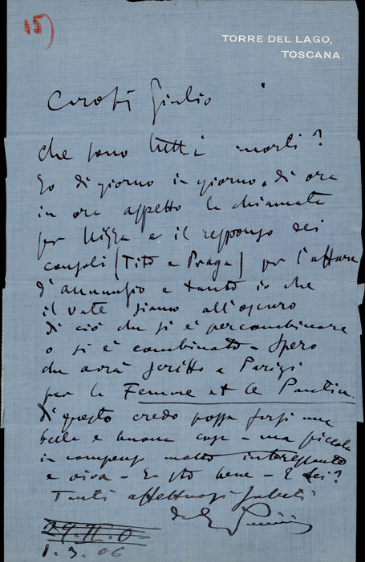 15)
TORRE DEL LAGO,
TOSCANA.
Caro Sig Giulio
che sono tutti morti?
Io di giorno in giorno, di ora
in ora aspetto la chiamata
per Nizza e il responso dei
consoli (Tito e Praga) per l'affare
d'Annunzio e tanto io che
il vate siamo all'oscuro
di ciò che si è per combinare
o si è combinato - Spero
che avrà scritto a Parigi
per la Femme et le Pantin
di questo credo possa farsi una
bella e buona cosa - ma piccola
in compenso molto interessante
e viva - Io sto bene - E Lei?
Tanti affettuosi saluti
del Puccini
1.3.06